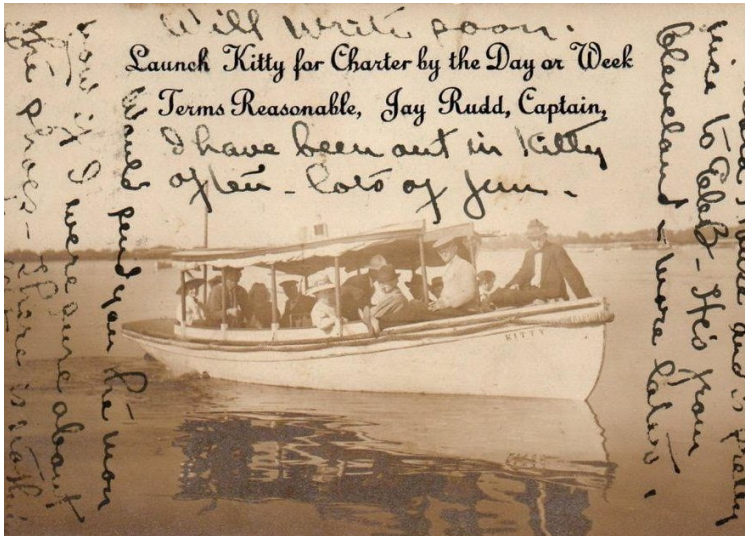 Will write soon.
Launch Kitty for Charter by the Day or Week
Terms Reasonable, Jay Rudd, Captain,
I have been out in Kitty
often - lots of fun.
KITTY
would send you the mon
now if I were sure about
the shoes - there is
and is pretty
nice to
He's from
Cleveland - more later.